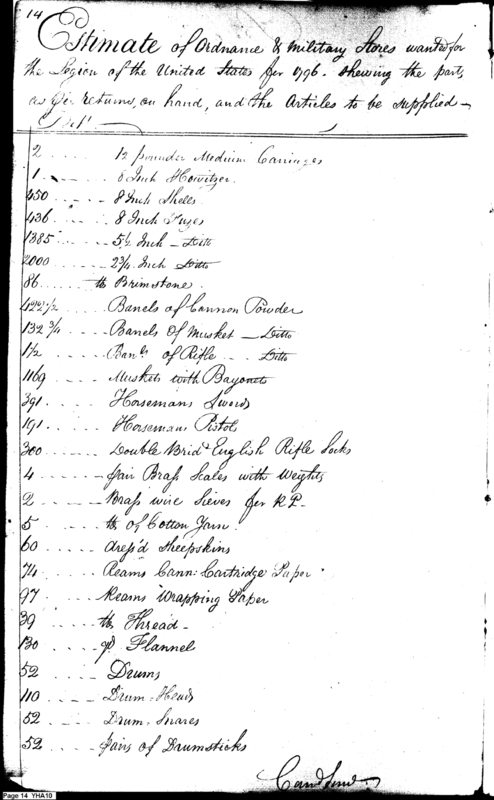 14
Estimate of Ordnance & Military Stores wanted for
the Legion of the United States for 1796. shewing the parts
as per returns, on hand, and the Articles to be supplied —
2 12 pounder Medium Carriages
1 8 Inch Howitzer.
450 8 Inch Shells
436 8 Inch Fuzes
1385 5½ Inch — Ditto
2000 2¾ Inch Ditto
86 lb Brimstone.
Barrels of Cannon Powder
132 ¾ Barrels of Musket — Ditto
1½ Barrls of Rifle Ditto
1169 Muskets with Bayonets
391 Horsemans Swords
191 Horsemans Pistols
300 Double Bridd English Rifle Locks
4 pair Brass Scales with Weights
2 Brass wire Sieves for R P.
5 lb of Cotton Yarn.
60 dress'd Sheepskins
74 Reams Cann: Cartridge Paper
97 Reams Wrapping Paper
39 lb Thread —
130 yds Flannel
52 Drums
110 Drum-Heads
52 Drum-Snares
52 pairs of Drumsticks
Page 14 YHA10